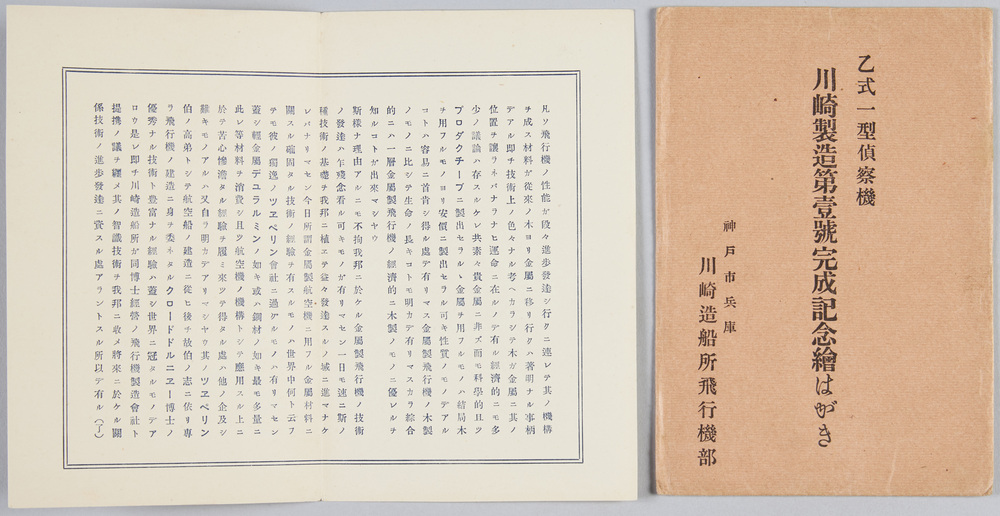 乙式一型偵察機
川崎製造第壹號完成記念繪はがき
神戸市兵庫
川崎造船所飛行機部
凡ソ飛行機ノ性能ガ段々進歩發達シ行クニ連レテ其ノ機構
ヲ成ス材料ガ從來ノ木ヨリ金屬ニ移リ行クハ著明ナル事柄
デアル即チ技術上ノ色々ナル考ヘカラシテ木ガ金屬ニ其ノ
位置ヲ讓ラネバナラナヒ運命ニ在ルノデ有ル經濟的ニモ多
少ノ議論ハ存スルケレ共素々貴金屬ニ非ズ而モ科學的且ツ
プロダクチーブニ製出セラルヽ金屬ヲ用フルモノハ結局木
ヲ用フルモノヨリ安價ニ製出セラル可キ性質ノモノデアル
コトハ容易ニ首肯シ得ル處デ有リマス金屬製飛行機ノ木製
ノモノニ比シテ生命ノ長キコトモ明カデ有リマスカラ綜合
的ニハ一層金屬製飛行機ノ經濟的ニ木製ノモノニ優レルヲ
知ルコトガ出來マシヤウ
斯樣ナ理由アルニモ不拘我邦ニ於ケル金屬製飛行機ノ技術
ノ發達ハ乍殘念看ル可キモノガ有リマセン一日モ速ニ斯ノ
種技術ノ基礎ヲ我邦ニ植エテ益々發達スルノ域ニ進マナケ
レバナリマセン今日所謂金屬製航空機ニ用フル金屬材料ニ
關スル確固タル技術ノ經驗ヲ有スルモノハ世界中何ト云フ
テモ彼ノ獨逸ノツエペリン會社ニ過グルモノハ有リマセン
蓋シ輕金屬デュラルミンノ如キ或ハ鋼材ノ如キ最モ多量ニ
此レ等材料ヲ消費シ且ツ航空機ノ機構トシテ應用スル上ニ
於テ苦心慘澹タル經驗ヲ履ミ來ツテ得タル處ハ他ノ企及シ
難キモノアルハ又自ラ明カデアリマシヤウ其ノツエペリン
伯ノ高弟トシテ航空船ノ建造ニ從ヒ後チ故伯ノ志ニ依リ專
ラ飛行機ノ建造ニ身ヲ委ネタルクロードドルニエー博士ノ
優秀ナル技術ト豐富ナル經驗ハ蓋シ世界ニ冠タルモノデア
ロウ是レ即チ川崎造船所ガ同博士經營ノ飛行機製造會社ト
提携ノ議ヲ纒メ其ノ智識技術ヲ我邦ニ收メ將來ニ於ケル關
係技術ノ進歩發達ニ資スル處アラントスル所以デ有ル(了)